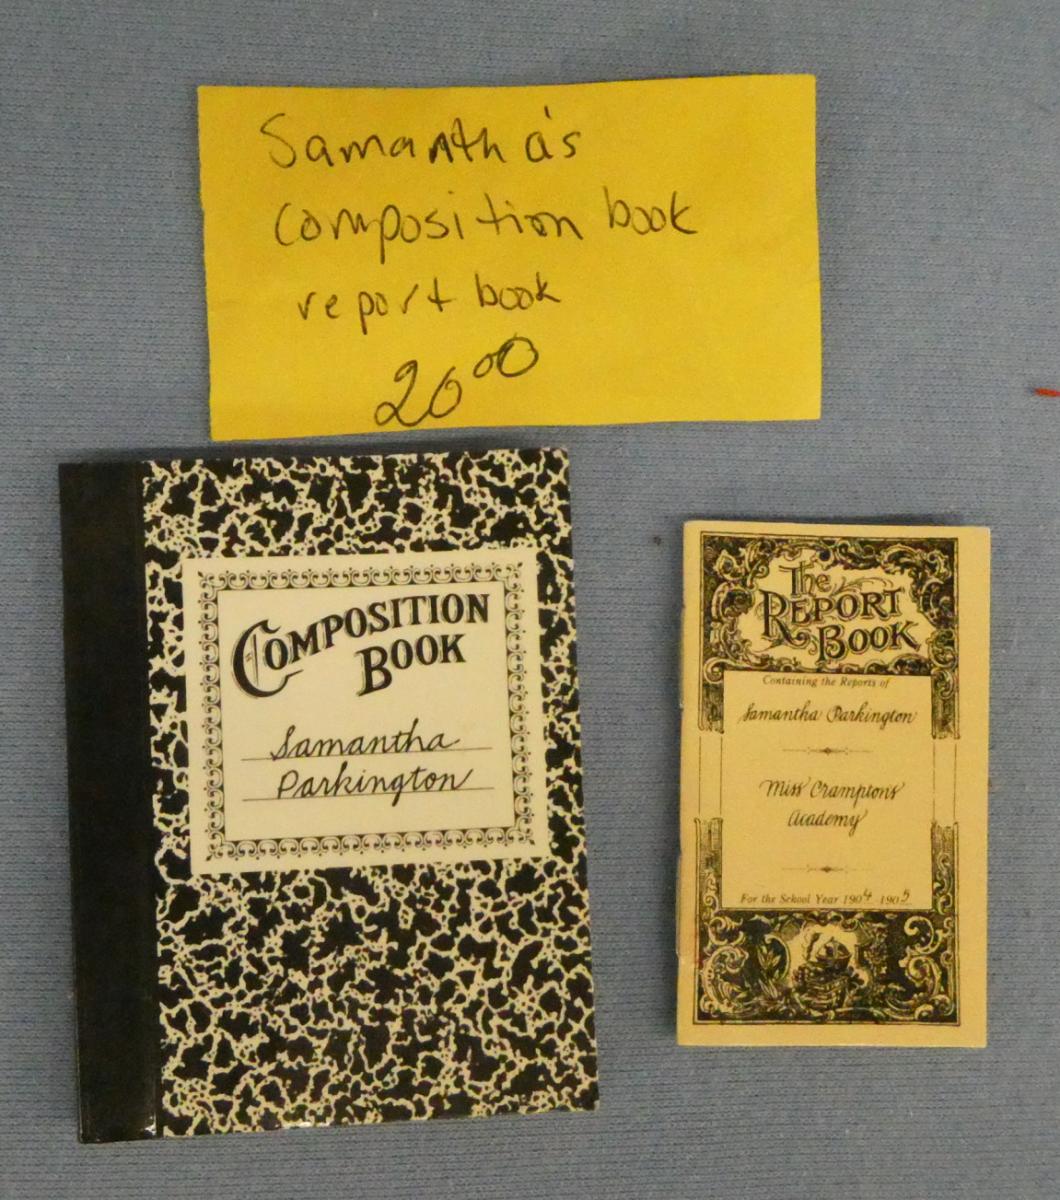 Samantha's
composition book
report book
20⁰⁰
COMPOSITION
BOOK
Samantha
Parkington
The
REPORT
BOOK
Containing the Reports of
Samantha Parkington
Miss Cramptons
Academy
For the School Year 1904-1905